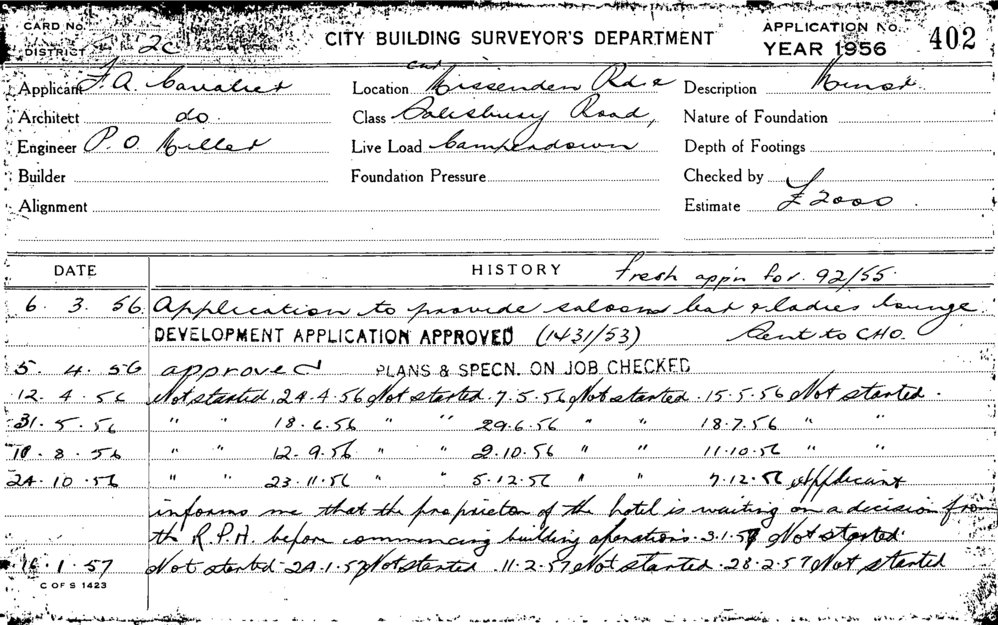 CARD No.
DISTRICT 2c CITY BUILDING SURVEYOR'S DEPARTMENT APPLICATION No. 402
YEAR 1956
Applicant F. A. Cavalier Location Cnr Missenden Rd & Description Minor
Architect do. Class Salisbury Road, Nature of Foundation
Engineer P. O. Miller Live Load Camperdown Depth of Footings
Builder Foundation Pressure Checked by
Alignment Estimate £2000
DATE HISTORY Fresh app'n for 92/55.
6. 3. 56. Application to provide saloon bar & ladies lounge.
DEVELOPMENT APPLICATION APPROVED (1431/53) Sent to CHO.
5. 4. 56 approved PLANS & SPECN. ON JOB CHECKED
12. 4. 56 Not started. 24.4.56 Not started. 7.5.56 Not started. 15.5.56 Not started.
31. 5. 56 " " 18.6.56 " " 29.6.56 " " 18.7.56 " "
8. 56 " " 12.9.56 " " 2.10.56 " " 11.10.56 " "
24. 10. 56 " " 23.11.56 " " 5.12.56 " " 7.12.56 Applicant
informs me that the proprietor of the hotel is waiting on a decision from
the R.P.H. before commencing building operations. 3.1.57 Not started.
1. 57 Not started. 24.1.57 Not started. 11.2.57 Not started. 28.2.57 Not started
C OF S 1423